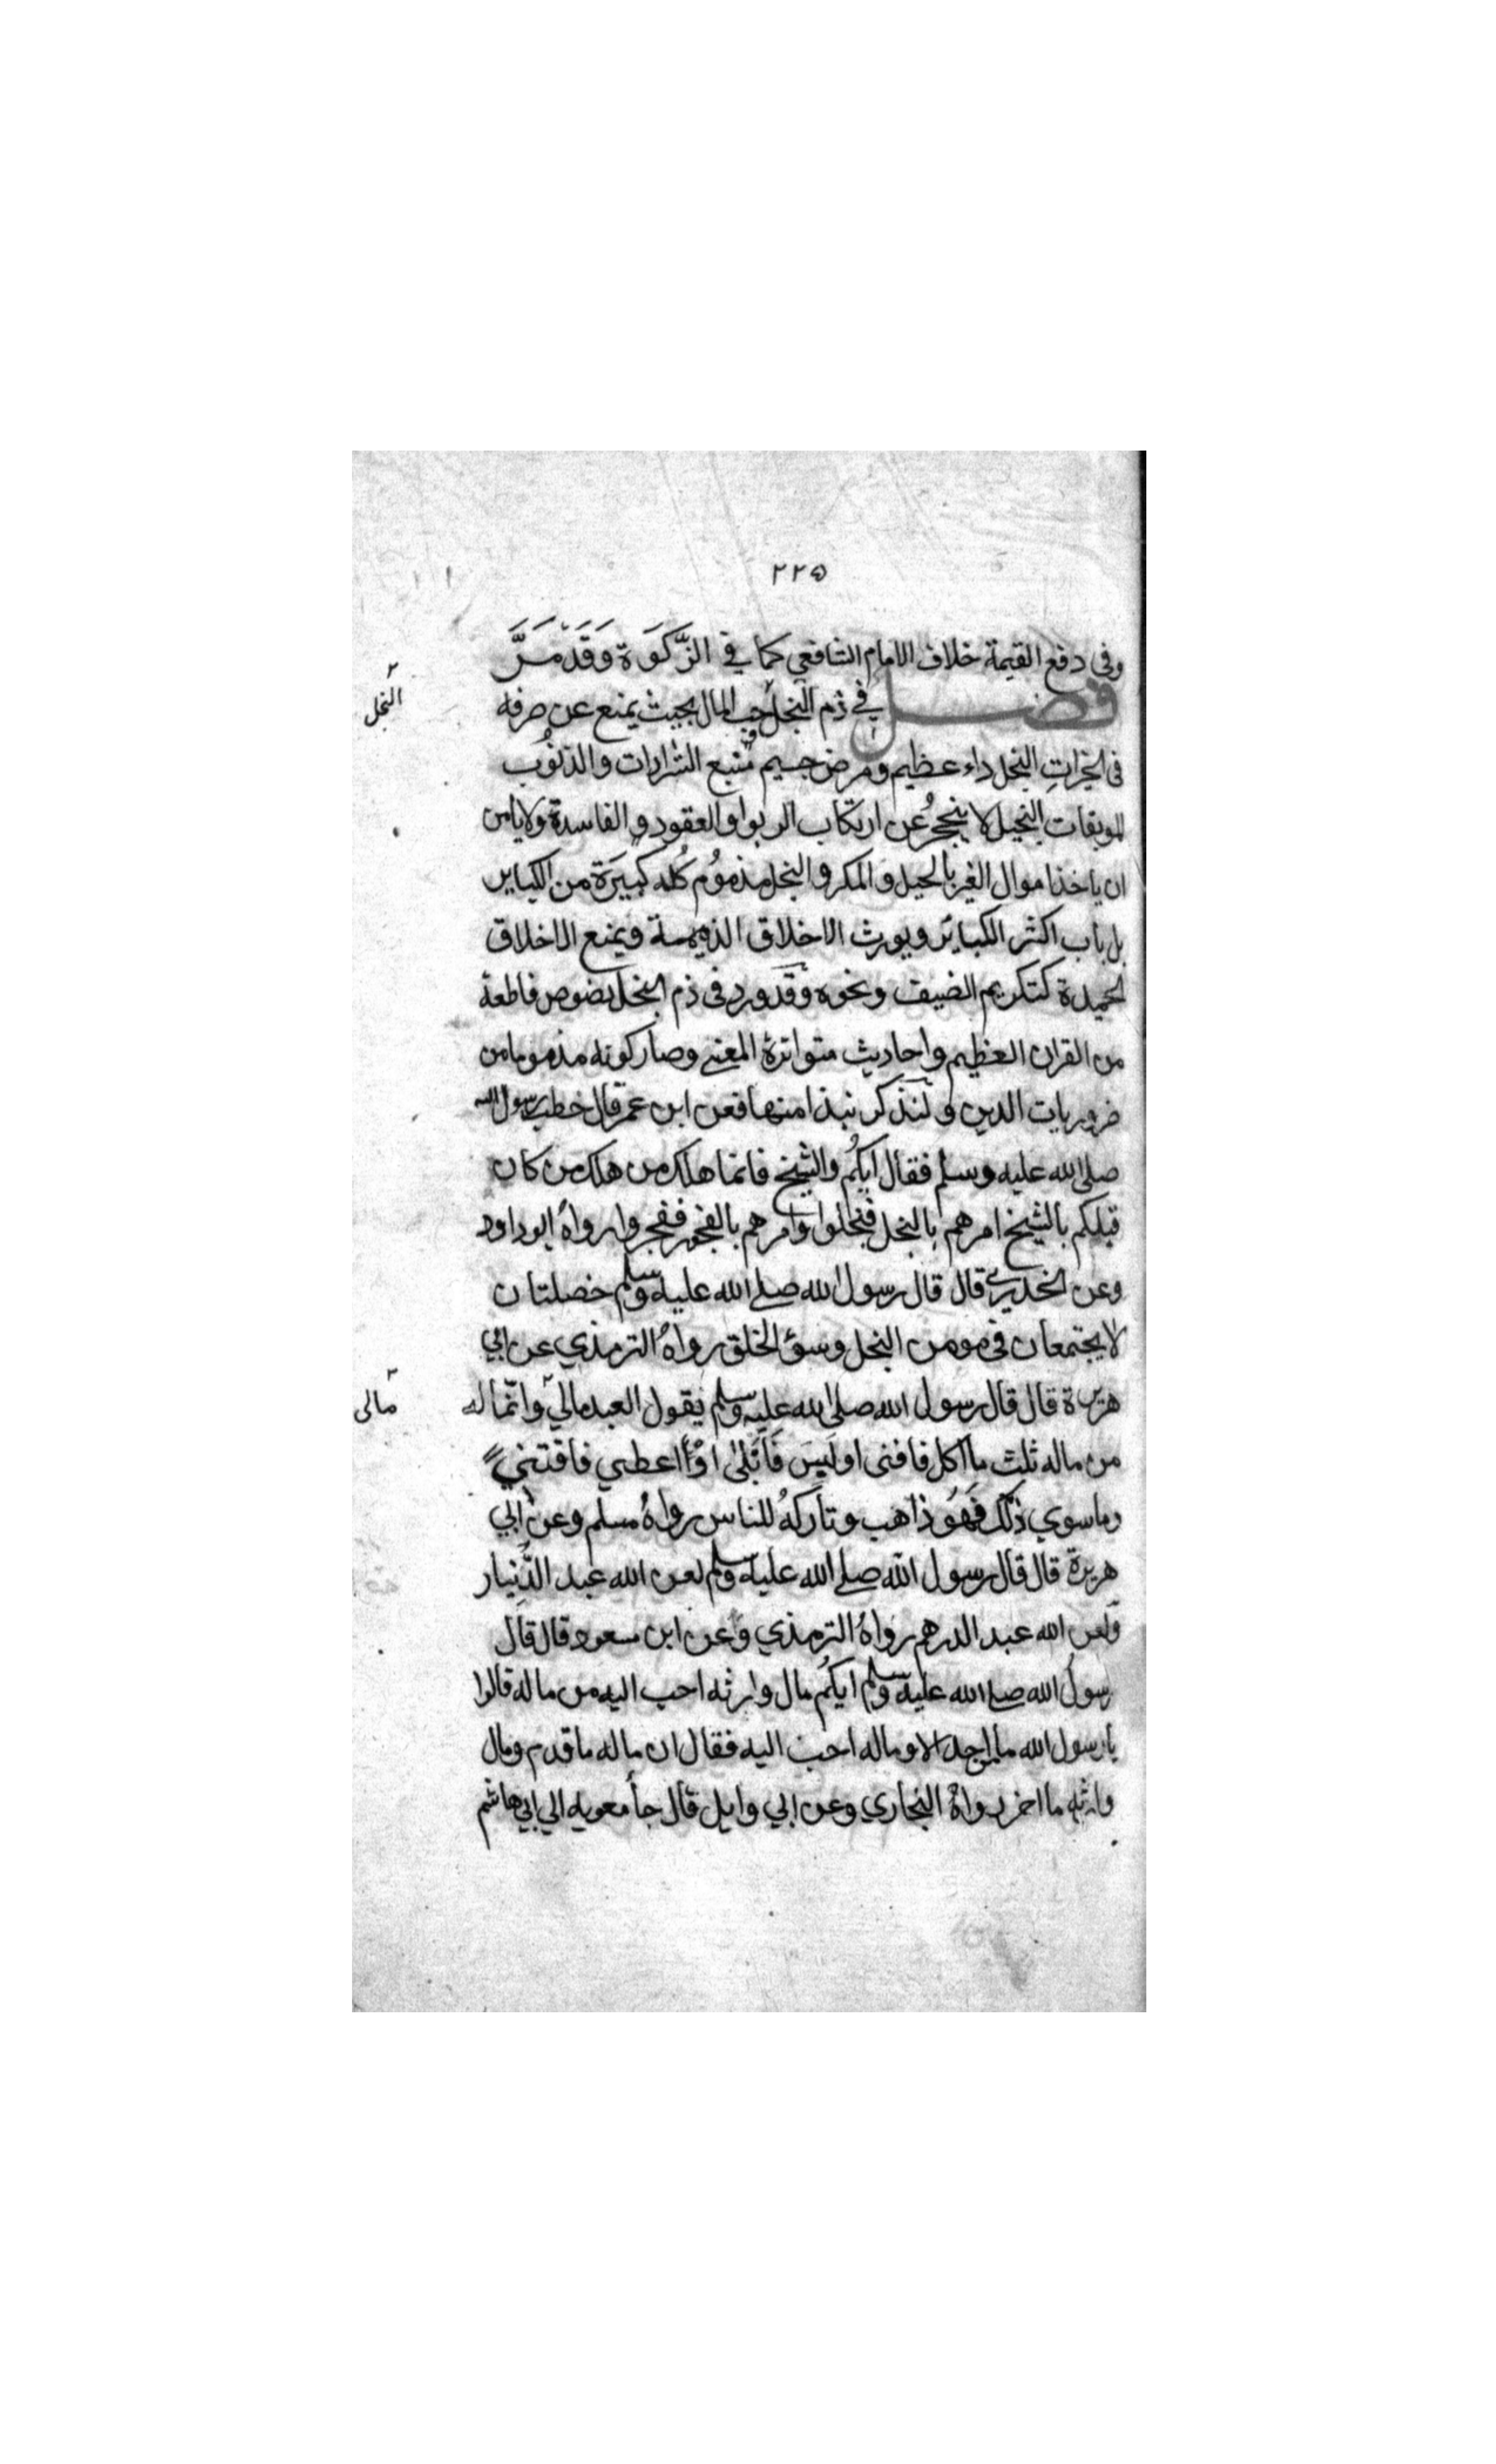 ٢٢٥
وفى دفع القيمة خلاف الامام الشافعي كما في الزَّكَوَة وَقَدْ مَرَّ
فصل في ذم البخل حب المال بحيث يمنع عن صرفه
البخل
فى الخيرات البخل داء عظيم ومرض جسيم منبع الشرارات والذنوب
الموبقات البخيل لا ينجر عن ارتكاب الربوا والعقود والفاسدة ولا يامن
ان ياخذ اموال الغير بالحيل والمكر والبخل مذموم كله كبيرة من الكباير
بل باب اكثر الكباير ويورث الاخلاق الذميمة ويمنع الاخلاق
الحميدة كتكريم الضيف ونحوه وقد ورد فى ذم البخل نصوص قاطعة
من القران العظيم واحاديث متواترة المعنے وصار كونه مذموما من
ضروريات الدين ولنذكر نبذا منها فعن ابن عمر قال خطب رسول الله
صلى الله عليه وسلم فقال اياكم والشيخ فانما هلك من هلك من كان
قبلكم بالشيخ امرهم بالبخل فبخلوا وامرهم بالفجور ففجروا رواه ابو داود
وعن الخدري قال قال رسول الله صلے الله عليه وسلم خصلتان
لا يجتمعان فى مومن البخل وسوٴ الخلق رواه الترمذي عن ابي
هريرة قال قال رسول الله صلى الله عليه وسلم يقول العبد مالي وانما له
مالى
من ماله ثلث ما اكل فافنى او لبس فابلى او اعطي فاقتني
وما سوي ذلك فهو ذاهب وتاركه للناس رواه مسلم وعن ابي
هريرة قال قال رسول الله صلے الله عليه وسلم لعن الله عبد الدنيار
ولعن الله عبد الدرهم رواه الترمذي وعن ابن مسعود قال قال
رسول الله صلے الله عليه وسلم ايكم مال وارثه احب اليه من ماله قالوا
يا رسول الله ما احد الا وماله احب اليه فقال ان ماله ما قدم ومال
وارثه ما اخر رواه البخاري وعن ابي وايل قال جا معويه الي ابي هاشم